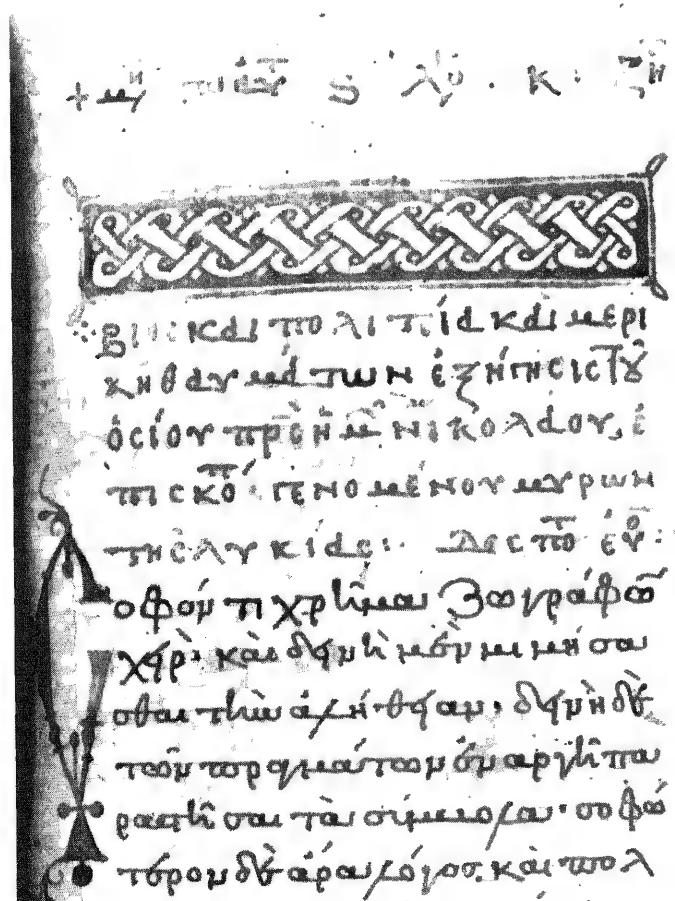 βίος καὶ πολιτεία καὶ μερι
κὴ θαυμάτων ἐξήγησις τοῦ
ὁσίου πρς ἡμῶν Νικολάου, ἐ
πισκό γενομένου μύρων
τῆς λυκίας: Δεσπο εὐ:
σοφόν τι χρῆμα ζωγράφων
χείρ· καὶ δεινὴ μὲν μιμήσα
σθαι τὴν ἀλήθειαν· δεινὴ δὲ
τῶν πραγμάτων ἐναργῆ πα
ραστῆσαι τὰ σύμβολα· σοφώ
τερον δὲ ἄρα λόγος· καὶ πολ